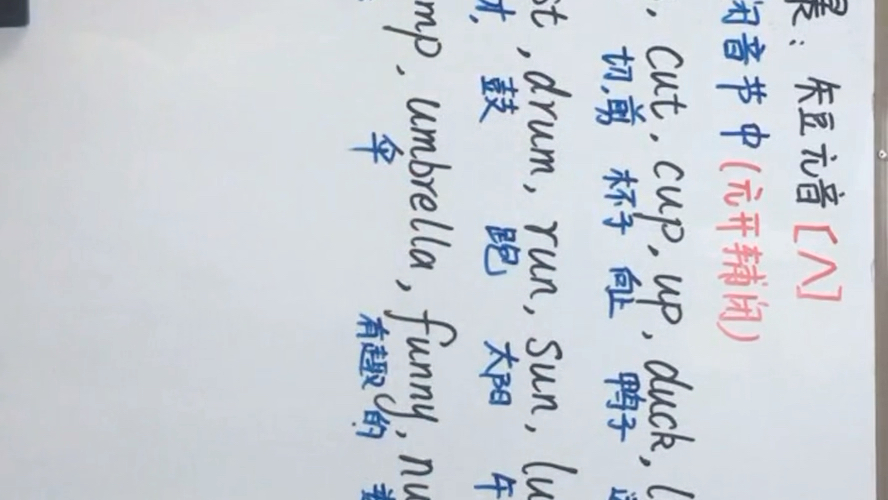 展：短元音[ʌ]
闭音节中(元开辅闭)
, cut, cup, up, duck, l
切,剪 杯子 向上 鸭子
st, drum, run, sun, lu
鼓 跑 太阳 午
ump, umbrella, funny, nu
伞 有趣的